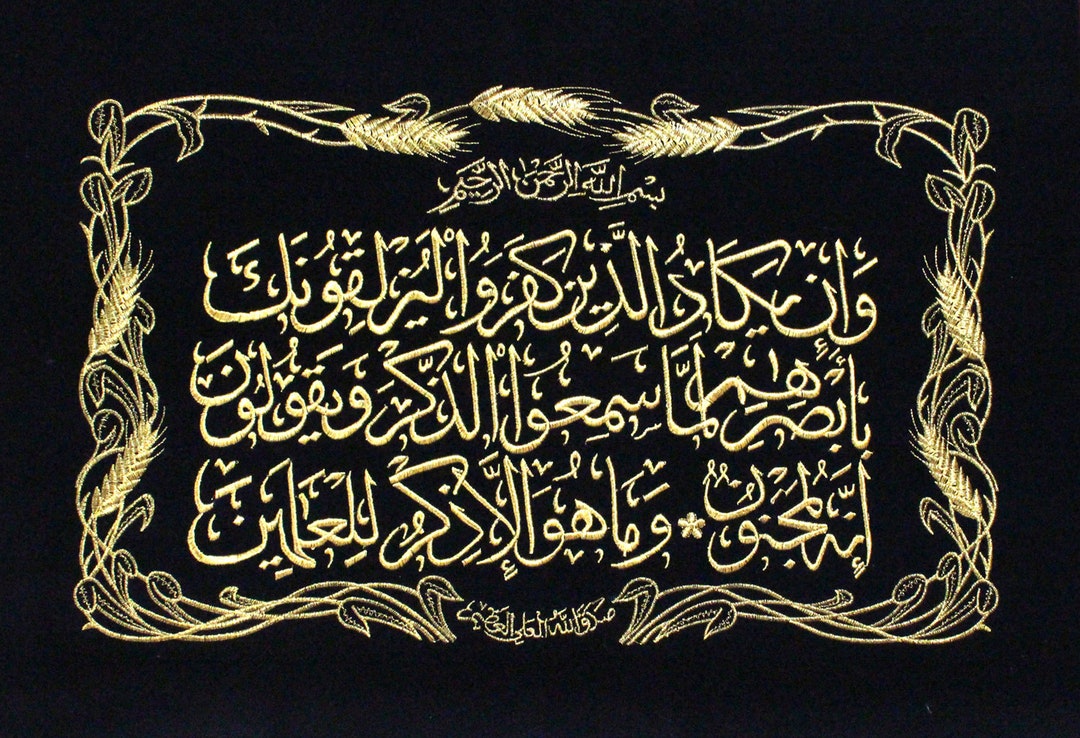 بِسْمِ اللَّهِ الرَّحْمَنِ الرَّحِيمِ
وَإِنْ يَكَادُ الَّذِينَ كَفَرُوا لَيُزْلِقُونَكَ
بِأَبْصَٰرِهِمْ لَمَّا سَمِعُوا الذِّكْرَ وَيَقُولُونَ
إِنَّهُ لَمَجْنُونٌ * وَمَا هُوَ إِلَّا ذِكْرٌ لِلْعَٰلَمِينَ
صدق الله العلي العظيم